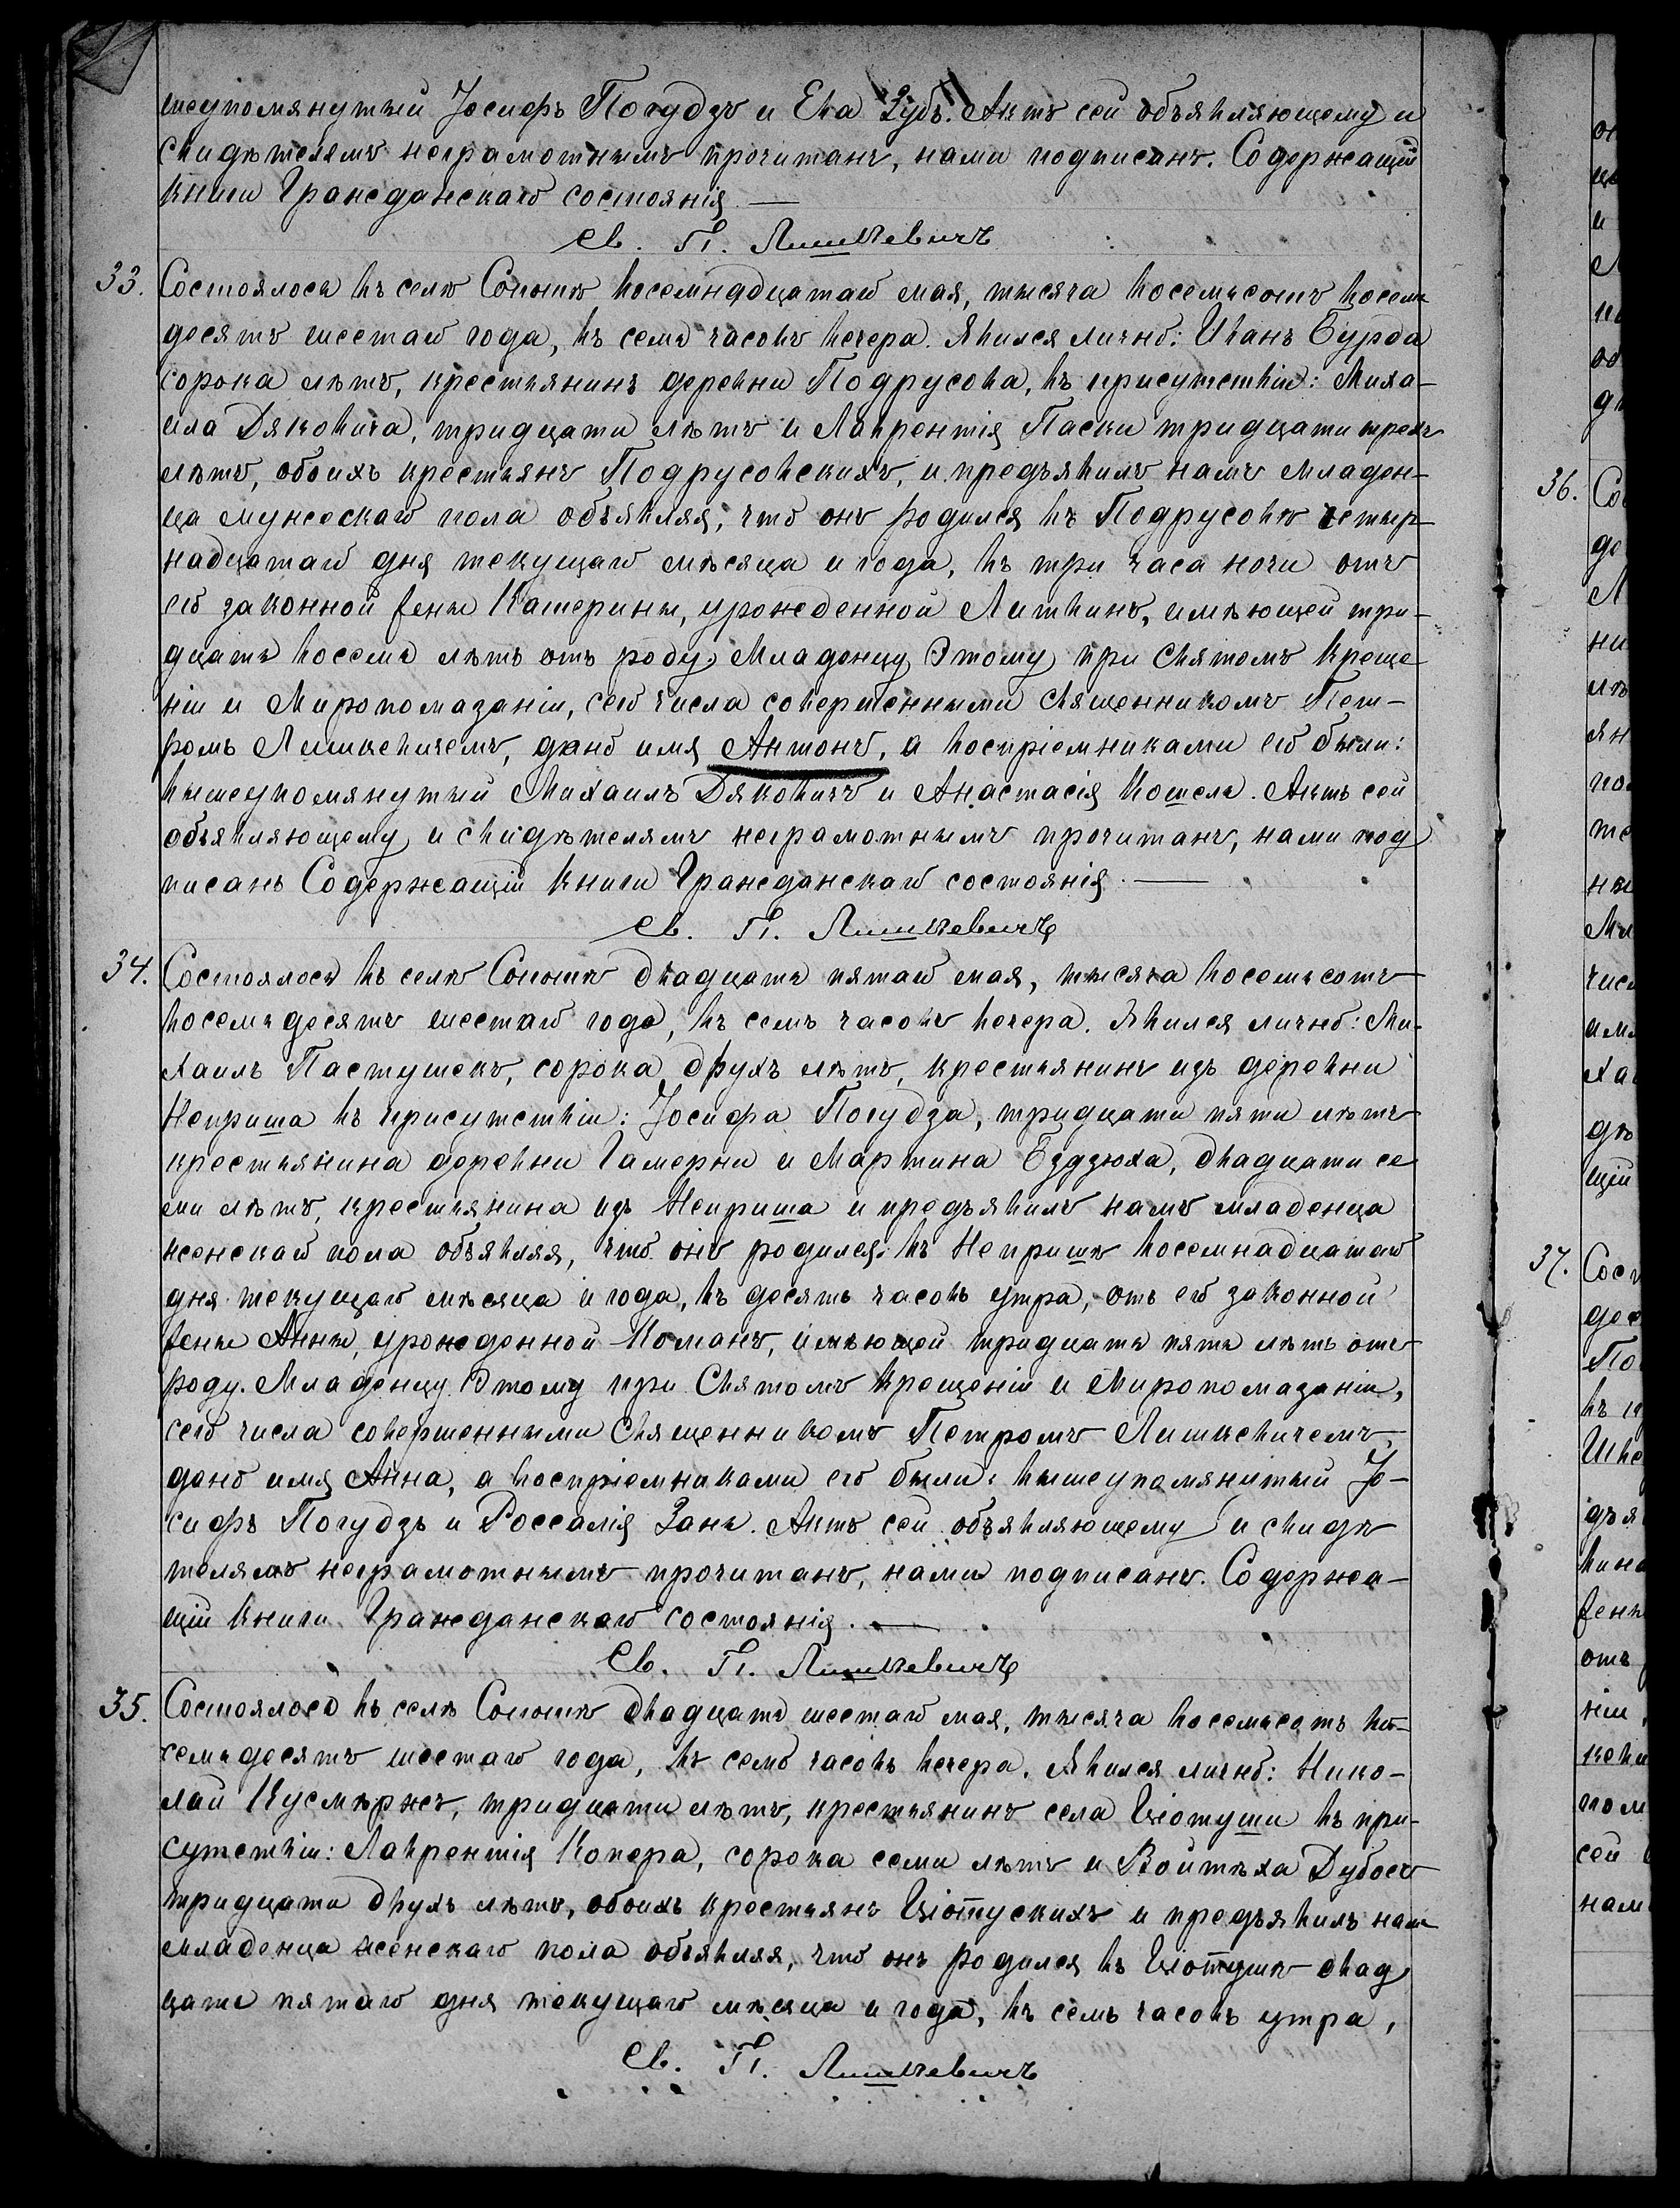 шеупомянутый Іосифъ Погудзъ и Ева Зубъ. Актъ сей объявляющему и
свидѣтелямъ неграмотнымъ прочитанъ, нами подписанъ. Содержащій
книги Гражданскаго состоянія —
Св. П. Лишкевичъ
33. Состоялось въ селѣ Сопотѣ восемнадцатаго мая, тысяча восемьсотъ восемь
десятъ шестаго года, въ семь часовъ вечера. Явился лично: Иванъ Бурда
сорока лѣтъ, крестьянинъ деревни Подрусова, въ присутствіи: Миха-
ила Дяковича, тридцати лѣтъ и Лаврентія Паски тридцати трехъ
лѣтъ, обоихъ крестьянъ Подрусовскихъ, и предъявилъ намъ младен-
ца мужескаго пола объявляя, что онъ родился въ Подрусовѣ четыр-
надцатаго дня текущаго мѣсяца и года, въ три часа ночи отъ
его законной жены Катерины, урожденной Литвинъ, имѣющей три-
дцать восемь лѣтъ отъ роду. Младенцу Этому при Святомъ Креще-
ніи и Миропомазаніи, сего числа совершенными Священникомъ Пет-
ромъ Лишкевичемъ, дано имя Антонъ, а воспріемниками его были:
вышеупомянутый Михаилъ Дяковичъ и Анастасія Кошель. Актъ сей
объявляющему и свидѣтелямъ неграмотнымъ прочитанъ, нами под
писанъ Содержащій книги Гражданскаго состоянія. —
Св. П. Лишкевичъ
34. Состоялось въ селѣ Сопотѣ двадцать пятаго мая, тысяча восемьсотъ
восемьдесятъ шестаго года, въ семь часовъ вечера. Явился лично: Ми-
хаилъ Пастушекъ, сорока двухъ лѣтъ, крестьянинъ изъ деревни
Неприша въ присутствіи: Іосифа Погудза, тридцати пяти лѣтъ
крестьянина деревни Гамерни и Мартина Бздзюха, двадцати се
ми лѣтъ, крестьянина изъ Неприша и предъявилъ намъ младенца
женскаго пола объявляя, что онъ родился въ Непришѣ восемнадцатаго
дня текущаго мѣсяца и года, въ десять часовъ утра, отъ его законной
жены Анны, урожденной Команъ, имѣющей тридцать пять лѣтъ отъ
роду. Младенцу Этому при Святомъ Крещеніи и Миропомазаніи,
сего числа совершенными Священникомъ Петромъ Лишкевичемъ,
дано имя Анна, а воспріемниками его были: вышеупомянутый Іо-
сифъ Погудзъ и Россалія Зань. Актъ сей объявляющему и свидѣ
телямъ неграмотнымъ прочитанъ, нами подписанъ. Содержа-
щій книги Гражданскаго состоянія. —
Св. П. Лишкевичъ
35. Состоялось въ селѣ Сопотѣ двадцать шестаго мая, тысяча восемьсотъ во-
семьдесятъ шестаго года, въ семь часовъ вечера. Явился лично: Нико-
лай Кусмѣржъ, тридцати лѣтъ, крестьянинъ села Ціотуши въ при-
сутствіи: Лаврентія Копера, сорока семи лѣтъ и Войтѣха Дубосъ
тридцати двухъ лѣтъ, обоихъ крестьянъ Ціотускихъ и предъявилъ нам
младенца женскаго пола объявляя, что онъ родился въ Ціотушѣ двад
цать пятаго дня текущаго мѣсяца и года, въ семь часовъ утра,
Св. П. Лишкевичъ
36.
37.